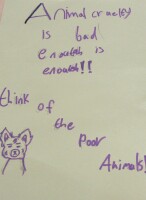 Animal cruelty
is bad
enough is
enough!!
think of
the
Poor
Animals!